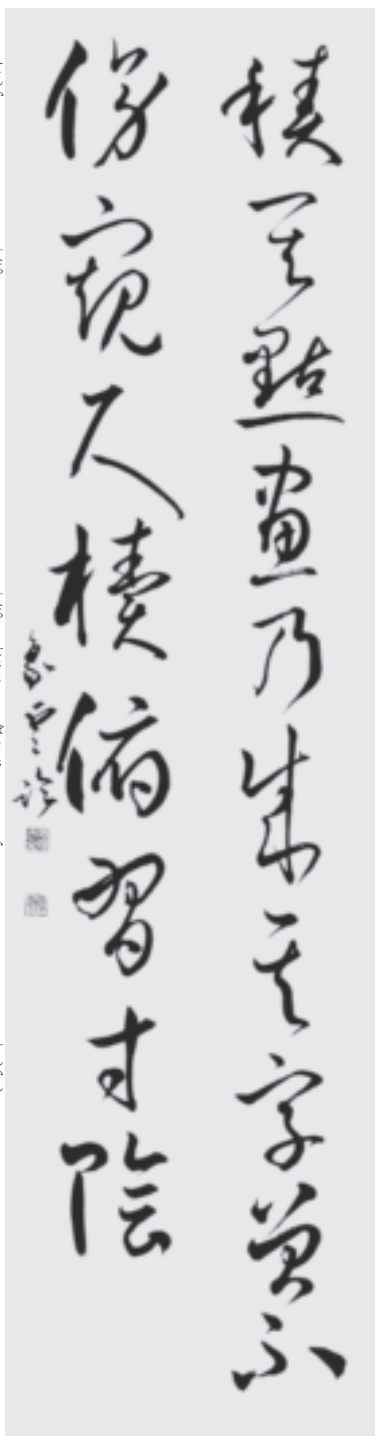 積其點畫乃成其字曾不
傍窺尺櫝俯習寸陰